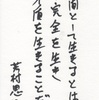 間として生きるとは
完全を生き
盾を生きることだ
芳村思